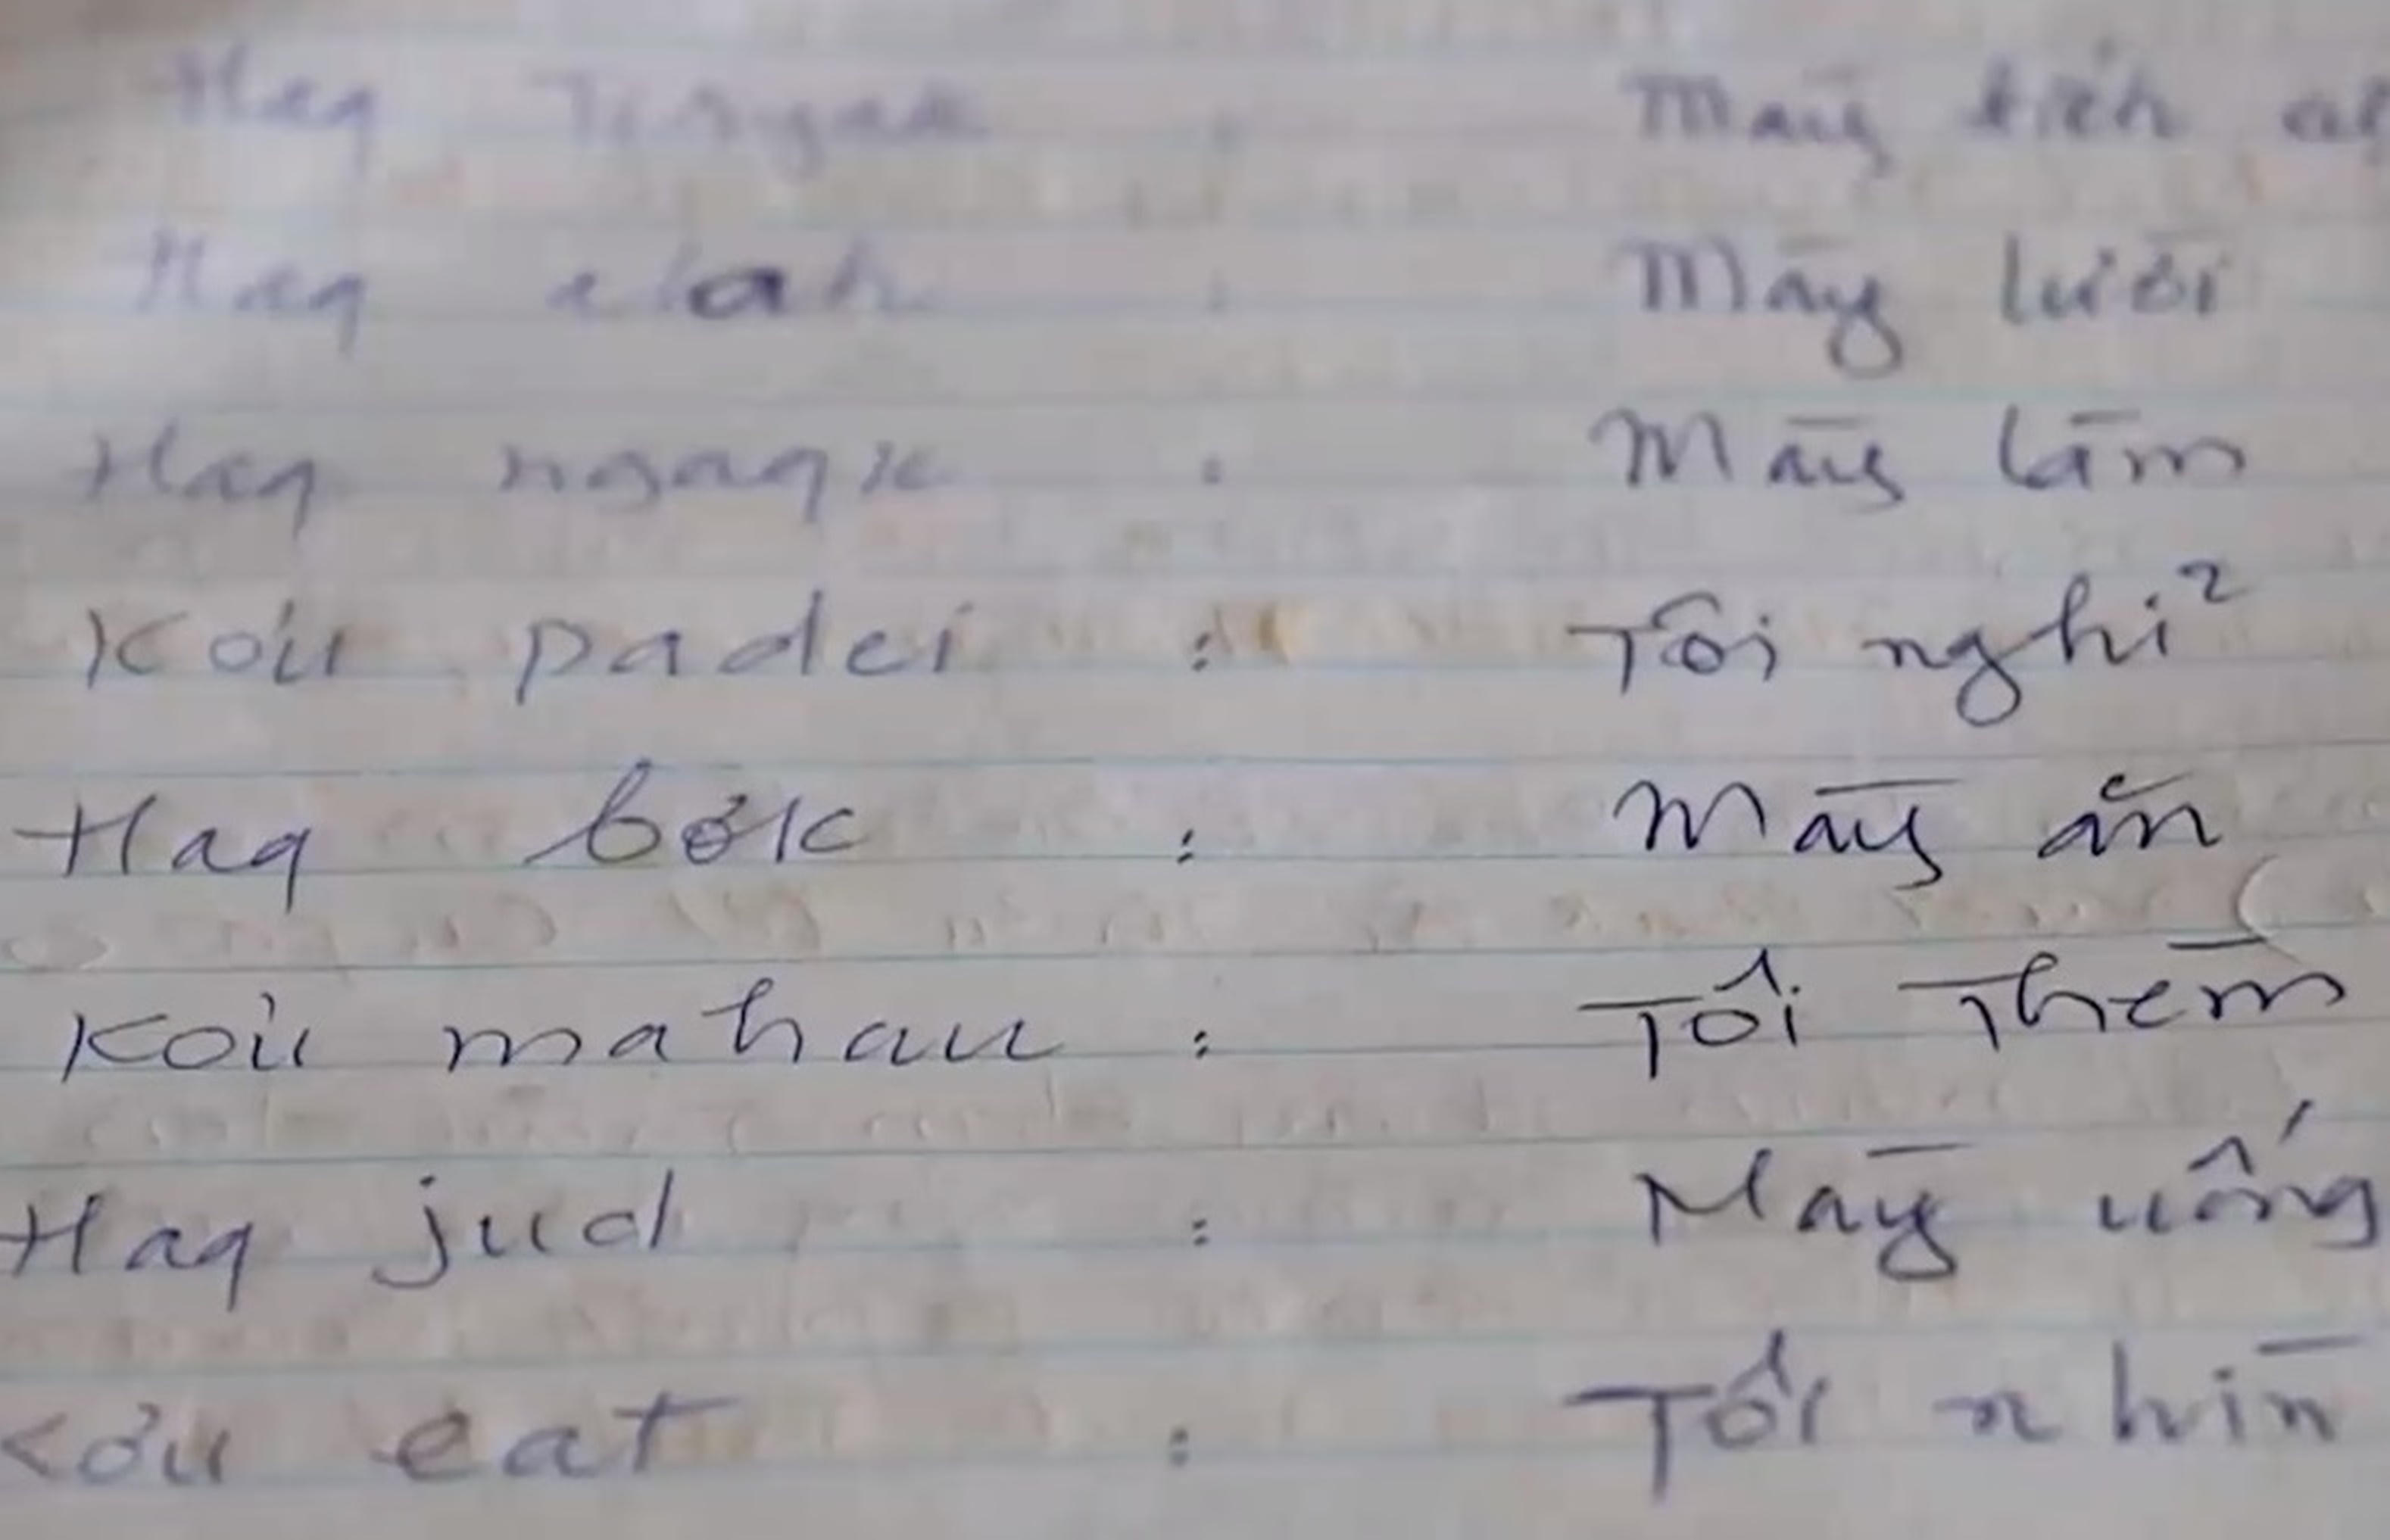 Haq : Mày
Haq alah : Mày lười
Haq ngaqk : Mày làm
Kơu padei : Tôi nghỉ
Haq bơk : Mày ăn
Kơu mahau : Tôi Thèm
Haq jud : Mày uống
Kơu eat : Tôi nhìn